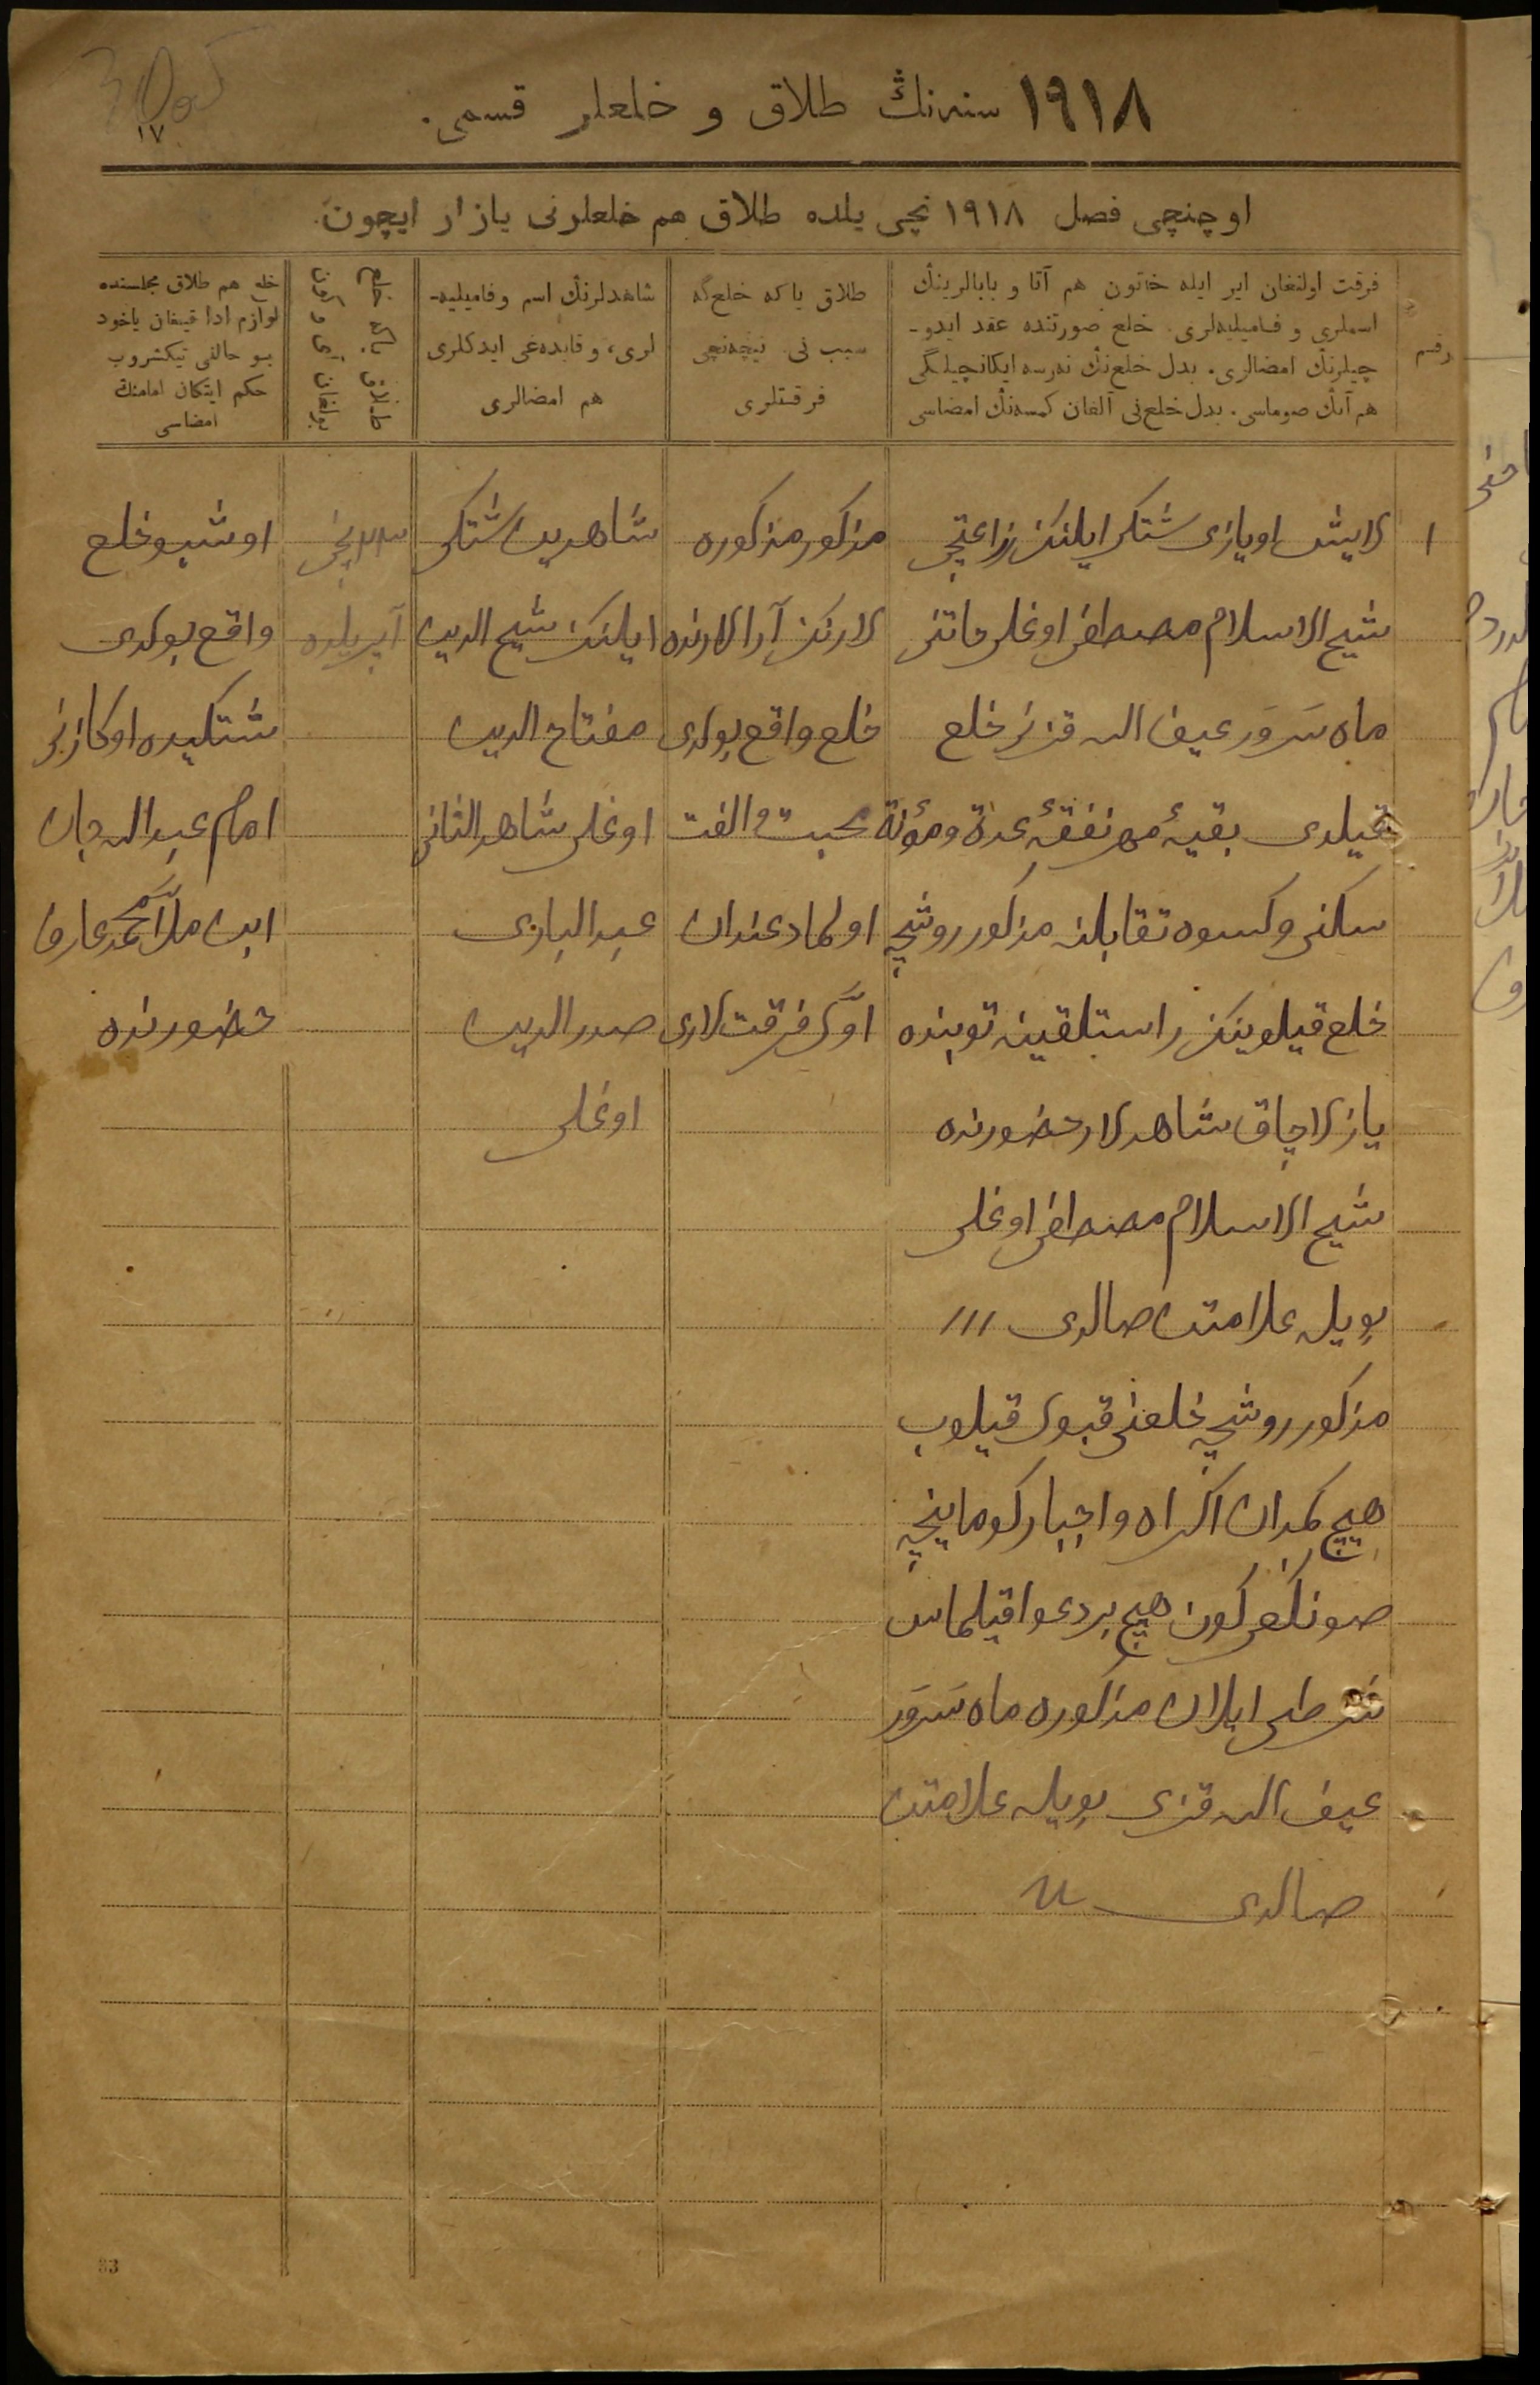 ١٧
١٩١٨ سنه‌نڭ طلاق و خلعلر قسمی.
اوچنچی فصل ١٩١٨ نچی یلده طلاق هم خلعلرنی یازار ایچون.
رقم
فرقت اولنغان ایر ایله خاتون هم آتا و بابالرینڭ
اسملری و فامیلیه‌لری. خلع صورتنده عقد ایدو-
چیلرنڭ امضالری. بدل خلع‌نڭ نه‌رسه ایکانچیلگی
هم آنڭ صوماسی. بدل خلع‌نی آلغان کمسه‌نڭ امضاسی
طلاق یا که خلع‌گه
سبب نی. نیچه‌نچی
فرقتلری
شاهدلرنڭ اسم و فامیلیه-
لری، و قایده‌غی ایدکلری
هم امضالری
طلاق یاکه خلع
بولغان آی و کون
خلع هم طلاق مجلسنده
لوازم ادا قیلغان یاخود
بو حالنی تیکشروب
حکم ایتکان امامنڭ
امضاسی
١
لایش اویازی شتکی ایلننک زراعتچی
شیخ الاسلام مصطفی اوغلی خاتنی
ماه سَرَوَر عیف الله قزین خلع
قیلدی بقیهٔ مهر نفقهٔ عدة و مؤنة
سکنی و کسوه تقابلنه مذکور روشچه
خلع قیلوینک راستلقینه توبنده
یازلاچاق شاهدلار حضورنده
شیخ الاسلام مصطفی اوغلی
بویله علامت صالدی ///
مذکور روشچه خلعنی قبول قیلوب
هیچ کمدان اکراه و اجبار کورماینچه
صونکغی کون هیچ بر دعوا قیلماس
شرطی ایلان مذکوره ماه سَرَوَر
عیف الله قزی بویله علامت
صالدی u
مذکور مذکوره
لارنک آرالارنده
خلع واقع بولدی
محبت و الفت
اولمادغندان
اوّل فرقت‌لاری
شاهدین شتکی
ایلننک شیخ الدین
مفتاح الدین
اوغلی شاهد الثانی
عبد الباری
صدر الدین
اوغلی
آپریلده
اوشبو خلع
واقع بولدی
شتکیده اوکازنی
امام عبد الله جان
ابن ملا محمد عارف
حضورنده
33